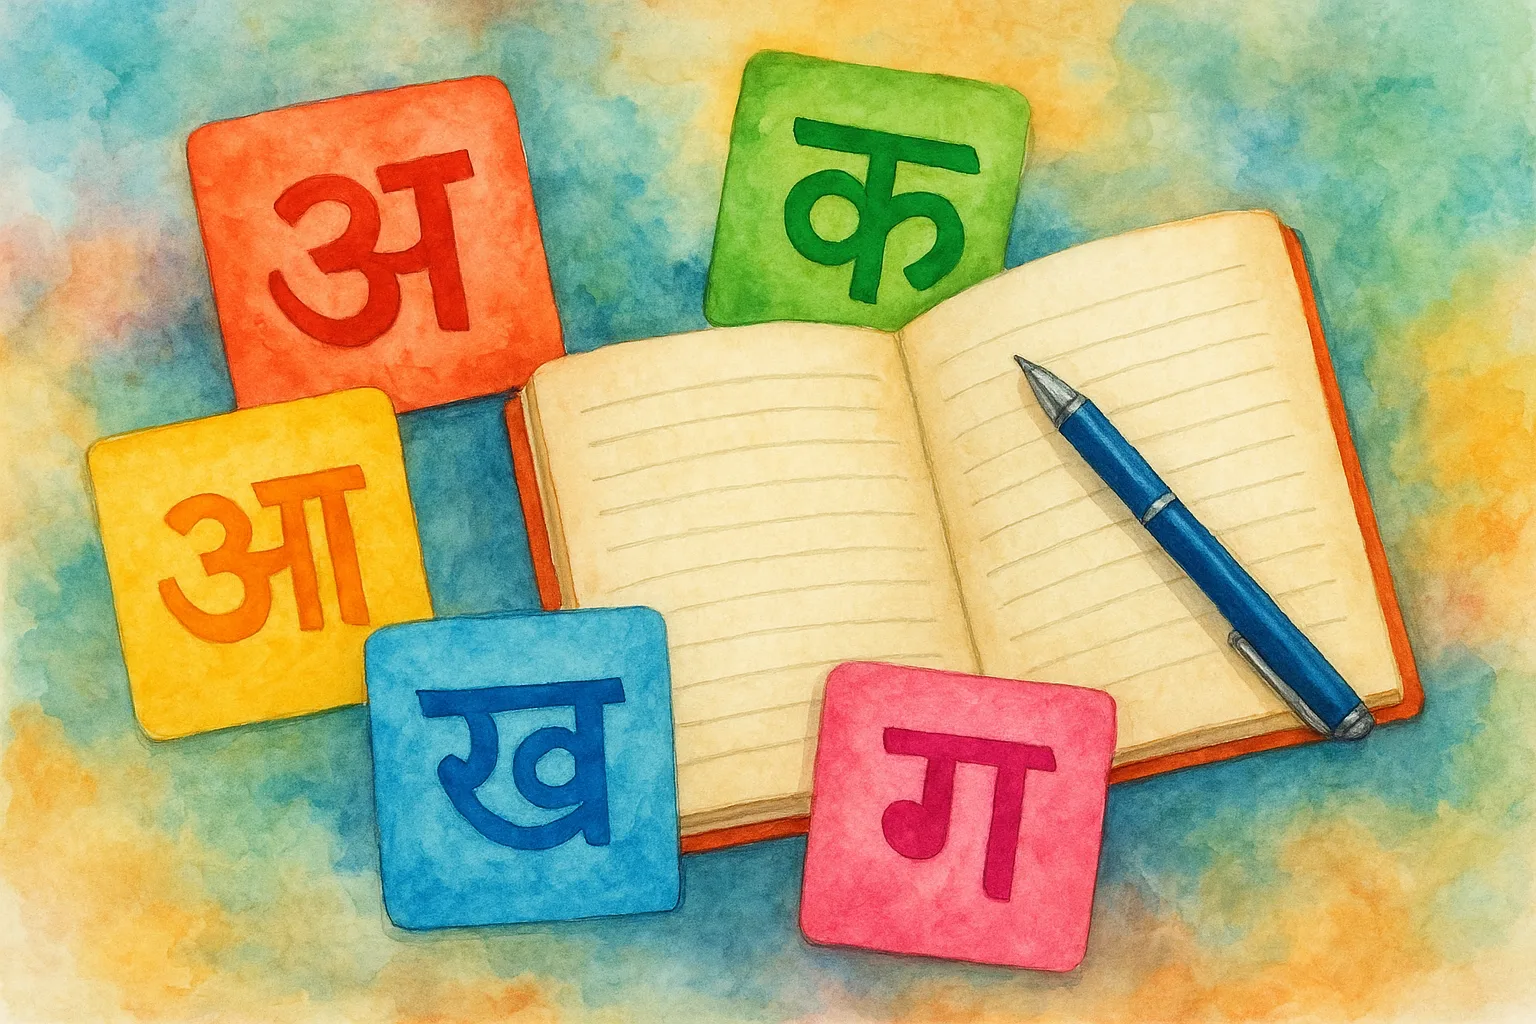 अ
क
आ
ख
ग